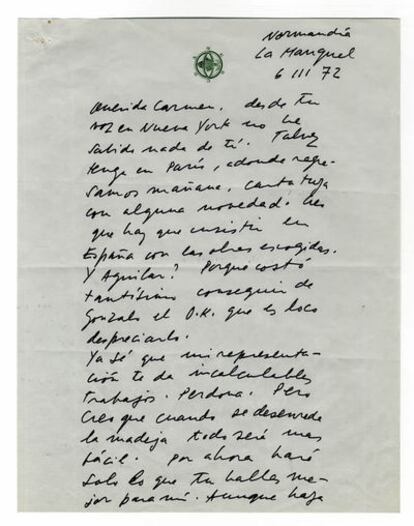 Normandía
La Manquel
6 III 72
Querida Carmen, desde tu
voz en Nueva York no he
sabido nada de ti. Talvez
tenga en París, adonde regre-
samos mañana, carta tuya
con alguna novedad. Creo
que hay que insistir en
España con las obras escogidas.
Y Aguilar? Porque costó
tantísimo conseguir de
Gonzalo el O.K. que es loco
despreciarlo.
Ya sé que mi representa-
ción te da incalculables
trabajos. Perdona. Pero
creo que cuando se desenrede
la madeja todo será mas
fácil. Por ahora haré
solo lo que tu halles me-
jor para mí. Aunque haya